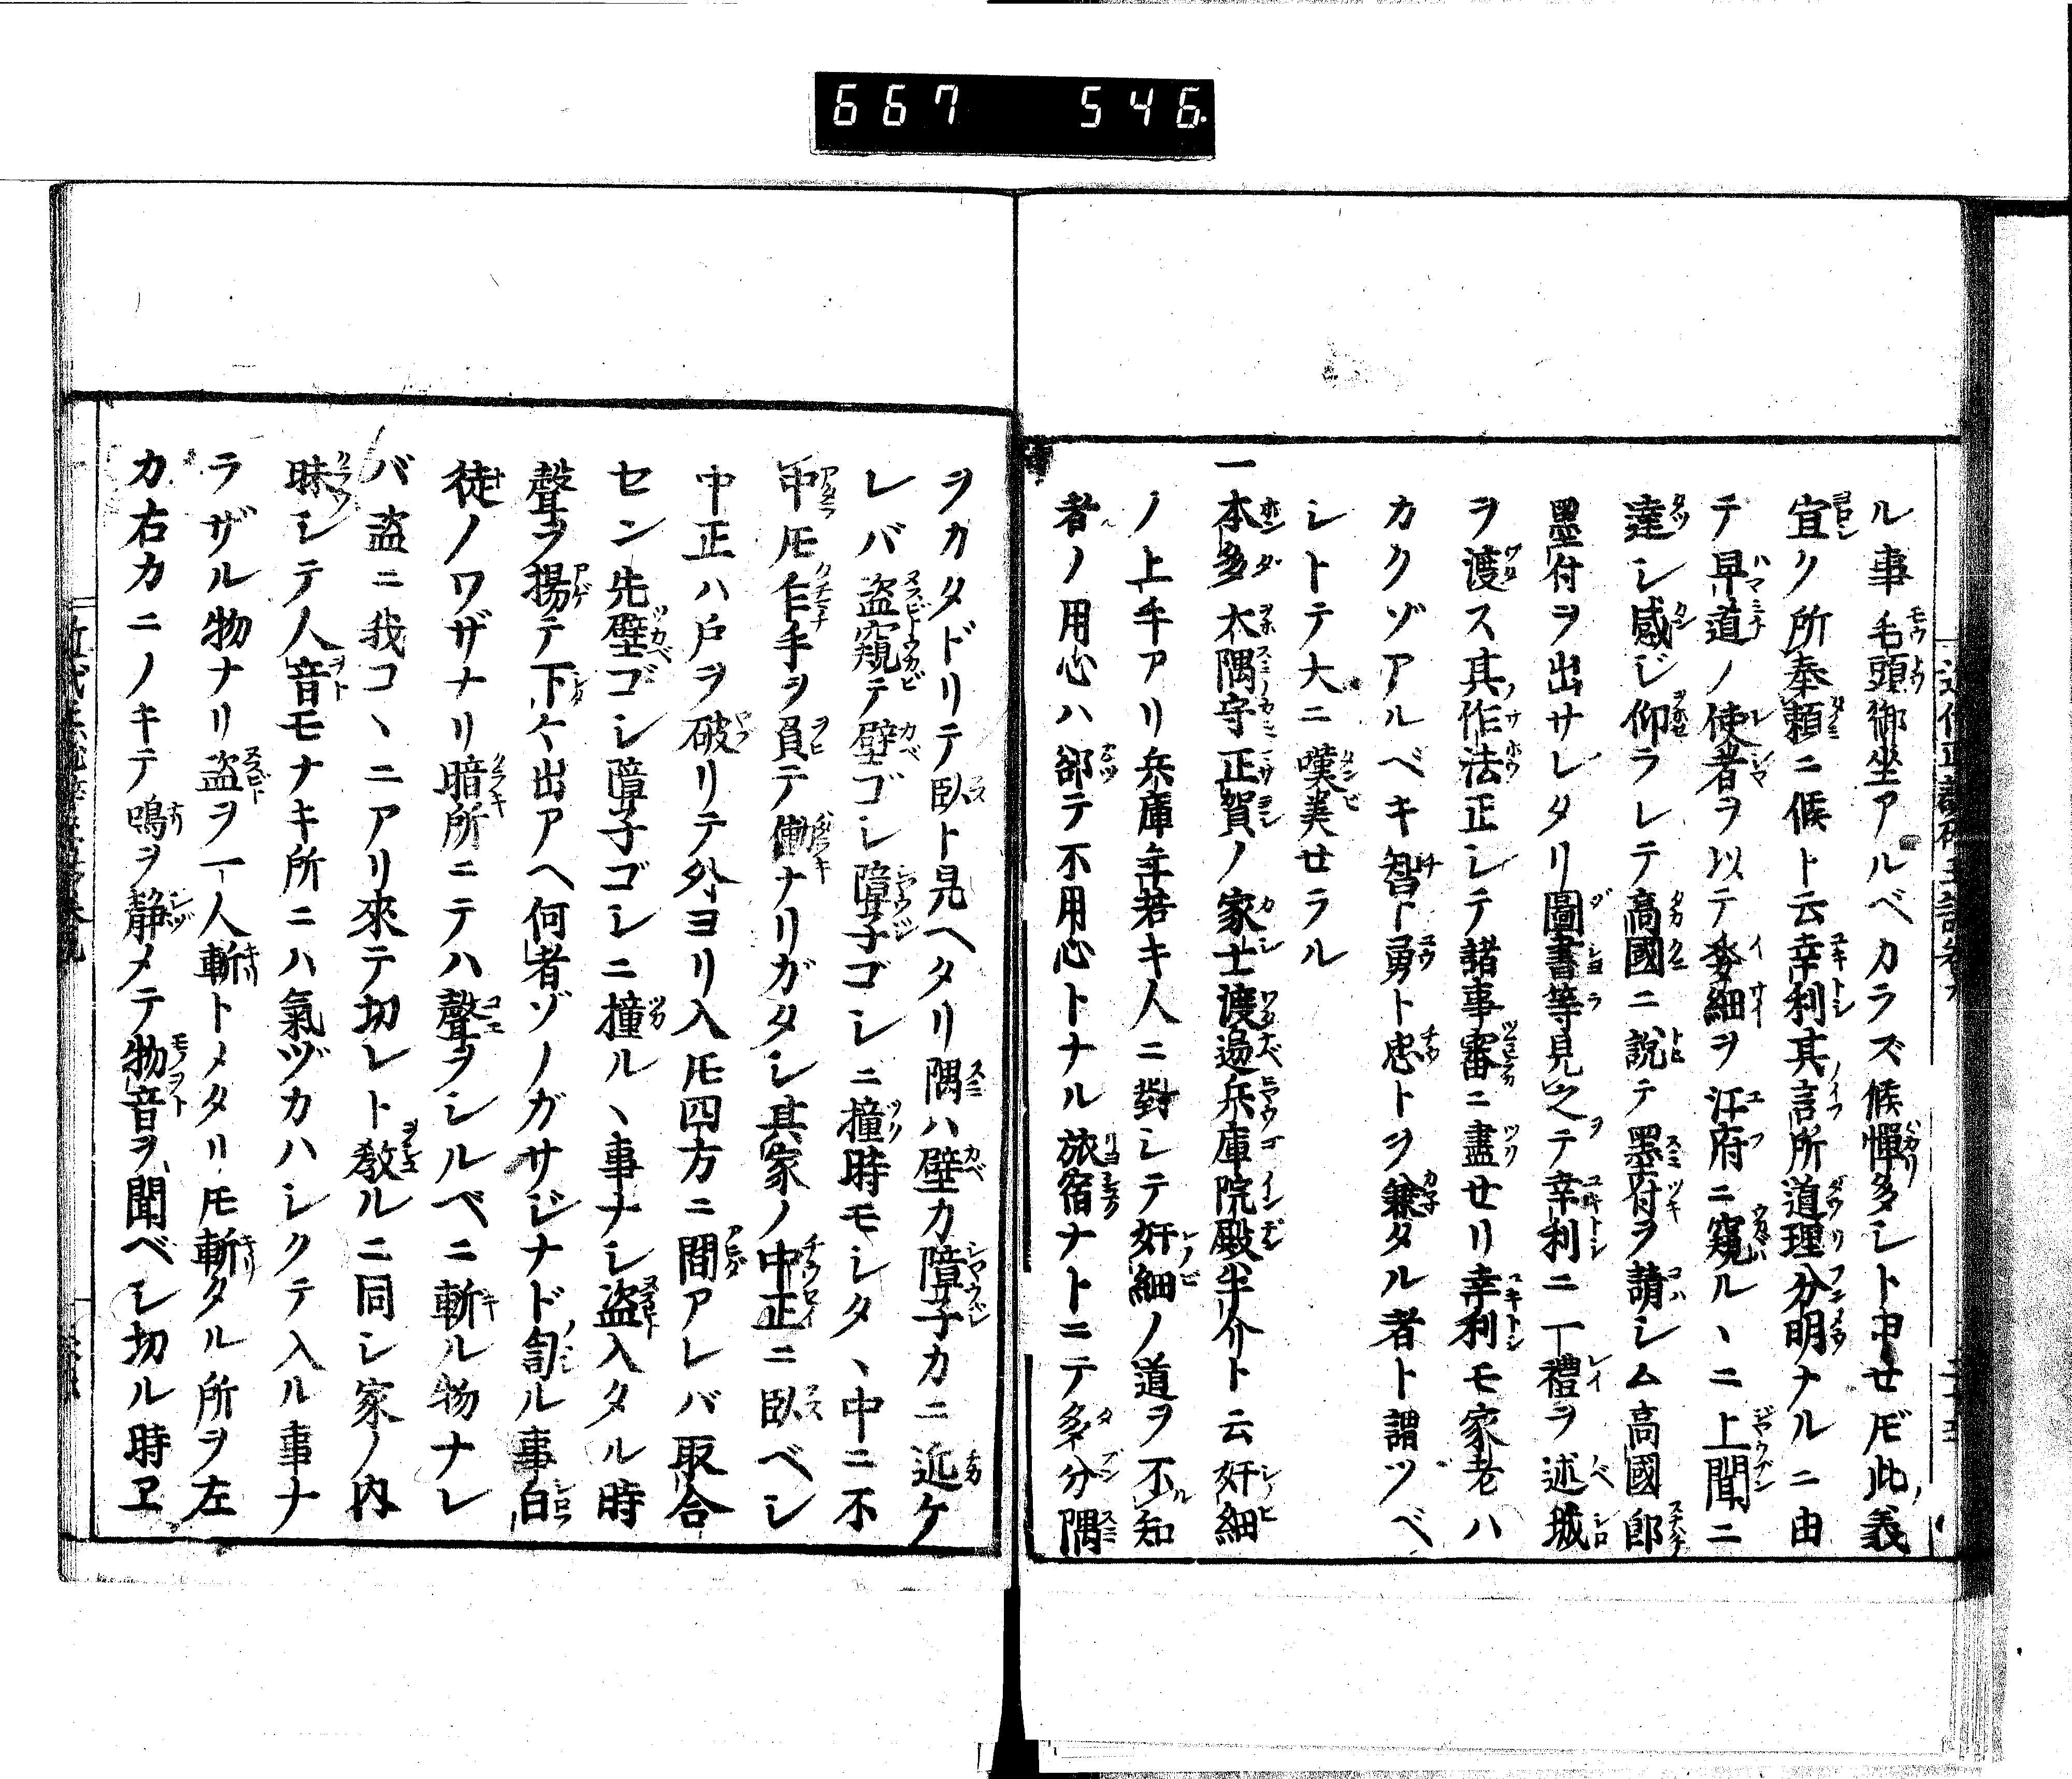 667 546.
ル事毛頭御坐アルベカラズ候憚多シト申せ𪜈此義
宜ク所奉頼ニ候ト云幸利其言所道理分明ナルニ由
テ早道ノ使者ヲ以テ委細ヲ江府ニ窺ルヽニ上聞ニ
達シ感ジ仰ラレテ高國ニ説テ墨付ヲ請シム高國郎
墨付ヲ出サレタリ圖書等見之テ幸利ニ一禮ヲ述城
ヲ渡ス其作法正シテ諸事審ニ盡せリ幸利モ家老ハ
カクゾアルベキ智ト勇ト忠トヲ兼タル者ト謂ツベ
シトテ大ニ嘆美せラル
一本多大隅守正賀ノ家士渡邊兵庫院殿半介ト云奸細
ノ上手アリ兵庫年若キ人ニ對シテ奸細ノ道ヲ不知
者ノ用心ハ郤テ不用心トナル旅宿ナトニテ多分隅
ヲカタドリテ臥ト見ヘタリ隅ハ壁カ障子カニ近ケ
レバ盗窺テ壁ゴシ障子ゴシニ撞時モシタヽ中ニ不
中𪜈乍手ヲ負テ働ナリガタシ其家ノ中正ニ臥ベシ
中正ハ戸ヲ破リテ外ヨリ入𪜈四方ニ間アレバ取合
セン先壁ゴシ障子ゴシニ撞ルヽ事ナシ盗入タル時
聲ヲ揚テ下々出アヘ何者ゾノガサジナド訇ル事白
徒ノワザナリ暗所ニテハ聲ヲシルベニ斬ル物ナレ
バ盗ニ我コヽニアリ來テ切レト教ルニ同シ家ノ内
昧シテ人音モナキ所ニハ氣ヅカハシクテ入ル事ナ
ラザル物ナリ盗ヲ一人斬トメタリ𪜈斬タル所ヲ左
カ右カニノキテ鳴ヲ静メテ物音ヲ聞ベシ切ル時ヱ